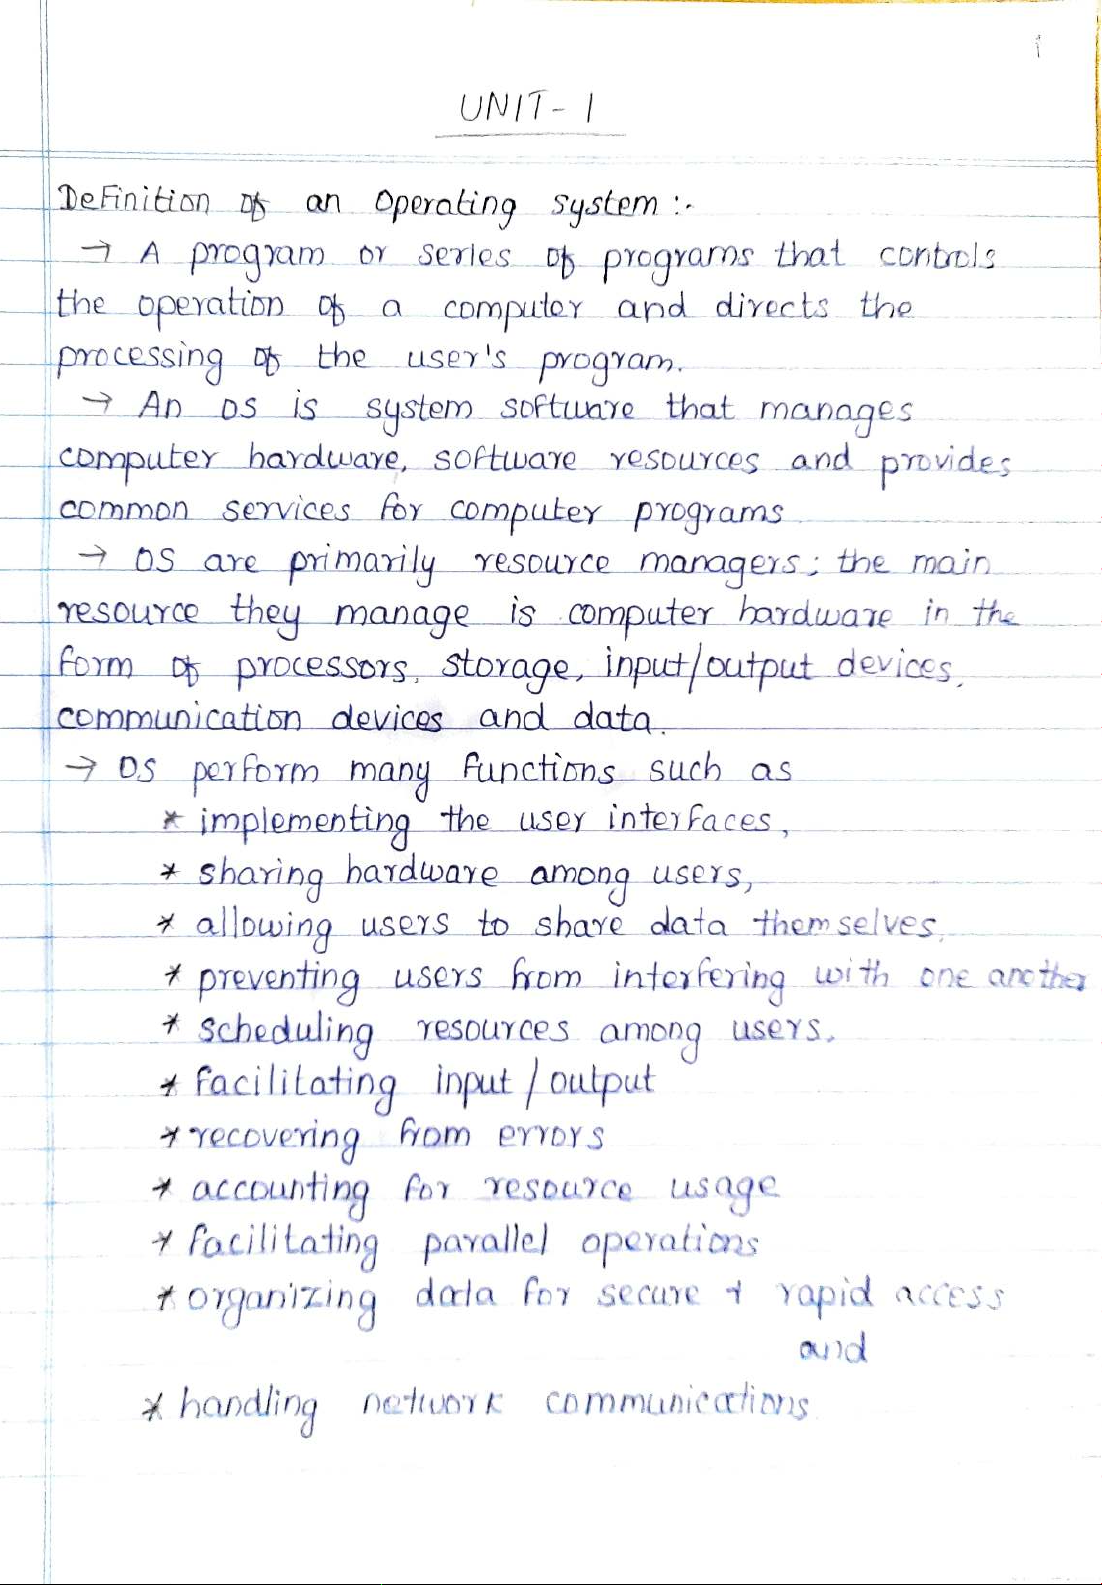 1
UNIT-1
Definition of an Operating system :-
→ A program or series of programs that controls
the operation of a computer and directs the
processing of the user's program.
→ An OS is system software that manages
computer hardware, software resources and provides
common services for computer programs
→ OS are primarily resource managers; the main
resource they manage is computer hardware in the
form of processors, storage, input/output devices,
communication devices and data.
→ OS perform many functions such as
* implementing the user interfaces,
* sharing hardware among users,
* allowing users to share data themselves,
* preventing users from interfering with one another
* scheduling resources among users.
* facilitating input / output
* recovering from errors
* accounting for resource usage
* facilitating parallel operations
* organizing data for secure & rapid access
and
* handling network communications